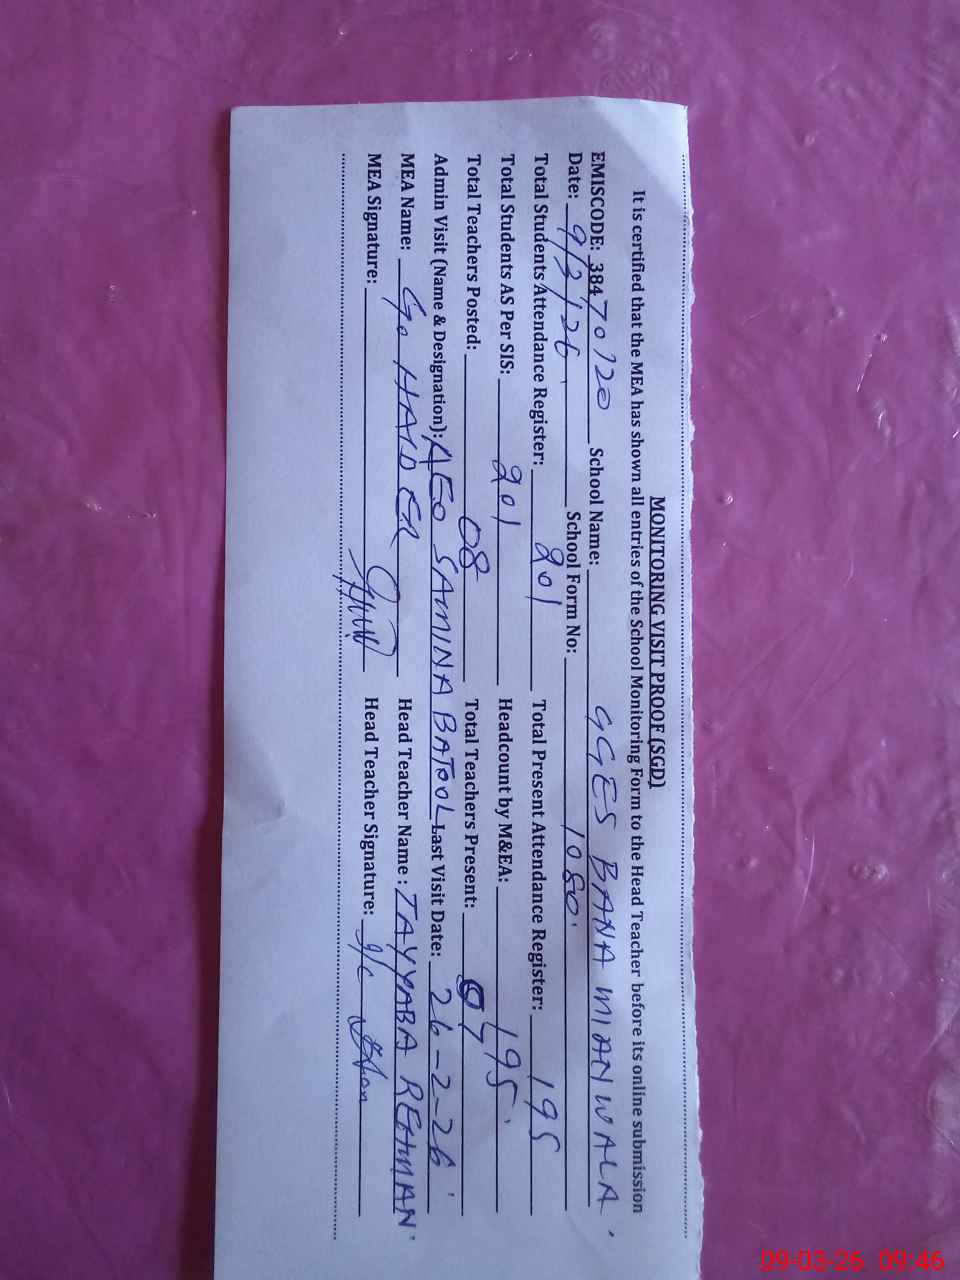 MONITORING VISIT PROOF (SGD)
It is certified that the MEA has shown all entries of the School Monitoring Form to the Head Teacher before its online submission
EMISCODE: 38470120 School Name: GGES BANA MIANWALA
Date: 9/3/26 School Form No: 1080
Total Students Attendance Register: 201 Total Present Attendance Register: 195
Total Students AS Per SIS: 201 Headcount by M&EA: 195
Total Teachers Posted: 08 Total Teachers Present: 07
Admin Visit (Name & Designation): AEO SAMINA BATOOL Last Visit Date: 26-2-26
MEA Name: G. HAIDER Head Teacher Name : TAYYABA REHMAN
MEA Signature: Head Teacher Signature: I/C
09-03-26 09:46